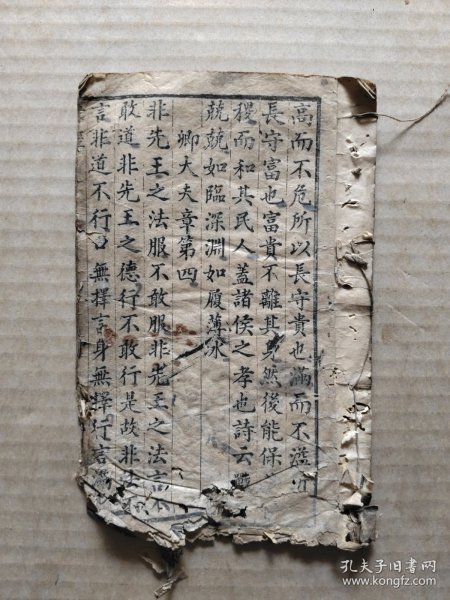 高而不危所以長守貴也滿而不溢所
長守富也富貴不離其身然後能保
稷而和其民人蓋諸侯之孝也詩云戰
兢兢如臨深淵如履薄冰
卿大夫章第四
非先王之法服不敢服非先王之法言不
敢道非先王之德行不敢行是故非法
言非道不行口無擇言身無擇行言滿
孔夫子旧书网
www.kongfz.com